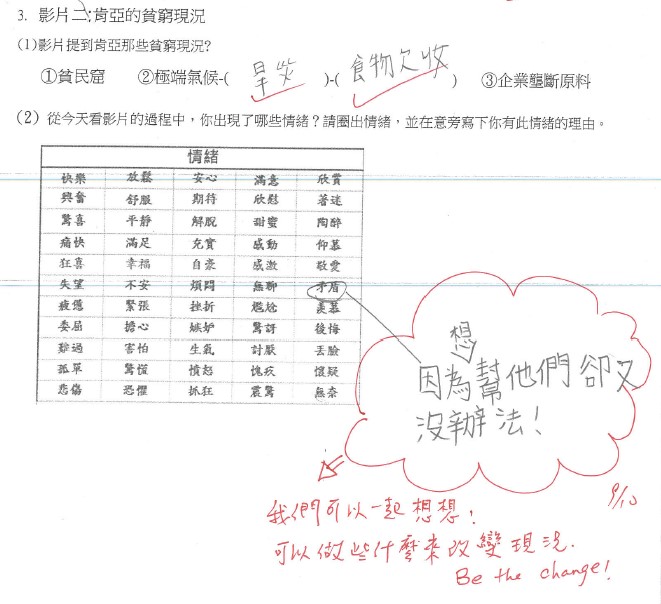 3. 影片二:肯亞的貧窮現況
(1)影片提到肯亞那些貧窮現況?
①貧民窟 ②極端氣候-( 旱災 )-( 食物欠收 ) ③企業壟斷原料
(2) 從今天看影片的過程中，你出現了哪些情緒？請圈出情緒，並在意旁寫下你有此情緒的理由。
情緒
快樂 放鬆 安心 滿意 欣賞
興奮 舒服 期待 欣慰 著迷
驚喜 平靜 解脫 甜蜜 陶醉
痛快 滿足 充實 感動 仰慕
狂喜 幸福 自豪 感激 敬愛
失望 不安 煩悶 無聊 矛盾
疲憊 緊張 挫折 尷尬 羨慕
委屈 擔心 嫉妒 驚訝 後悔
難過 害怕 生氣 討厭 丟臉
孤單 驚慌 憤怒 愧疚 懷疑
悲傷 恐懼 抓狂 震驚 無奈
想
因為幫他們卻又
沒辦法！
9/10
我們可以一起想想！
可以做些什麼來改變現況.
Be the change!